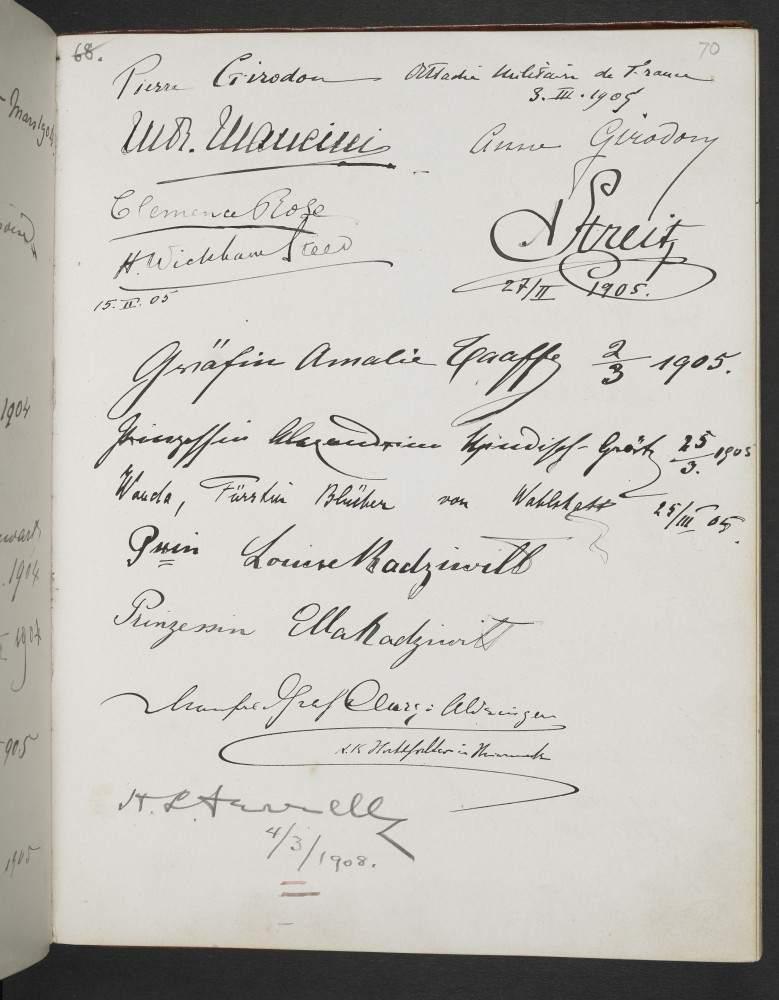 68.
70
Pierre Girodon Attaché Militaire de France
3. III. 1905
M.R. Mancini
Anne Girodon
Clemence Rose
A Streit
H. Wickham Steed
27/II 1905.
15. II. 05
Gräfin Amalie Taaffe 2/3 1905.
Prinzessin Alexandrine Windisch-Graetz 25/3. 1905
Wanda, Fürstin Blücher von Wahlstatt 25/III 05.
Pssin Louise Radziwill
Prinzessin Ella Radziwill
Manfred Graf Clary: Aldringen
K.K. Statthalter in Steiermark
H. L.
4/3/1908.
Mars 1904
1904
1904
1904
1905
1905